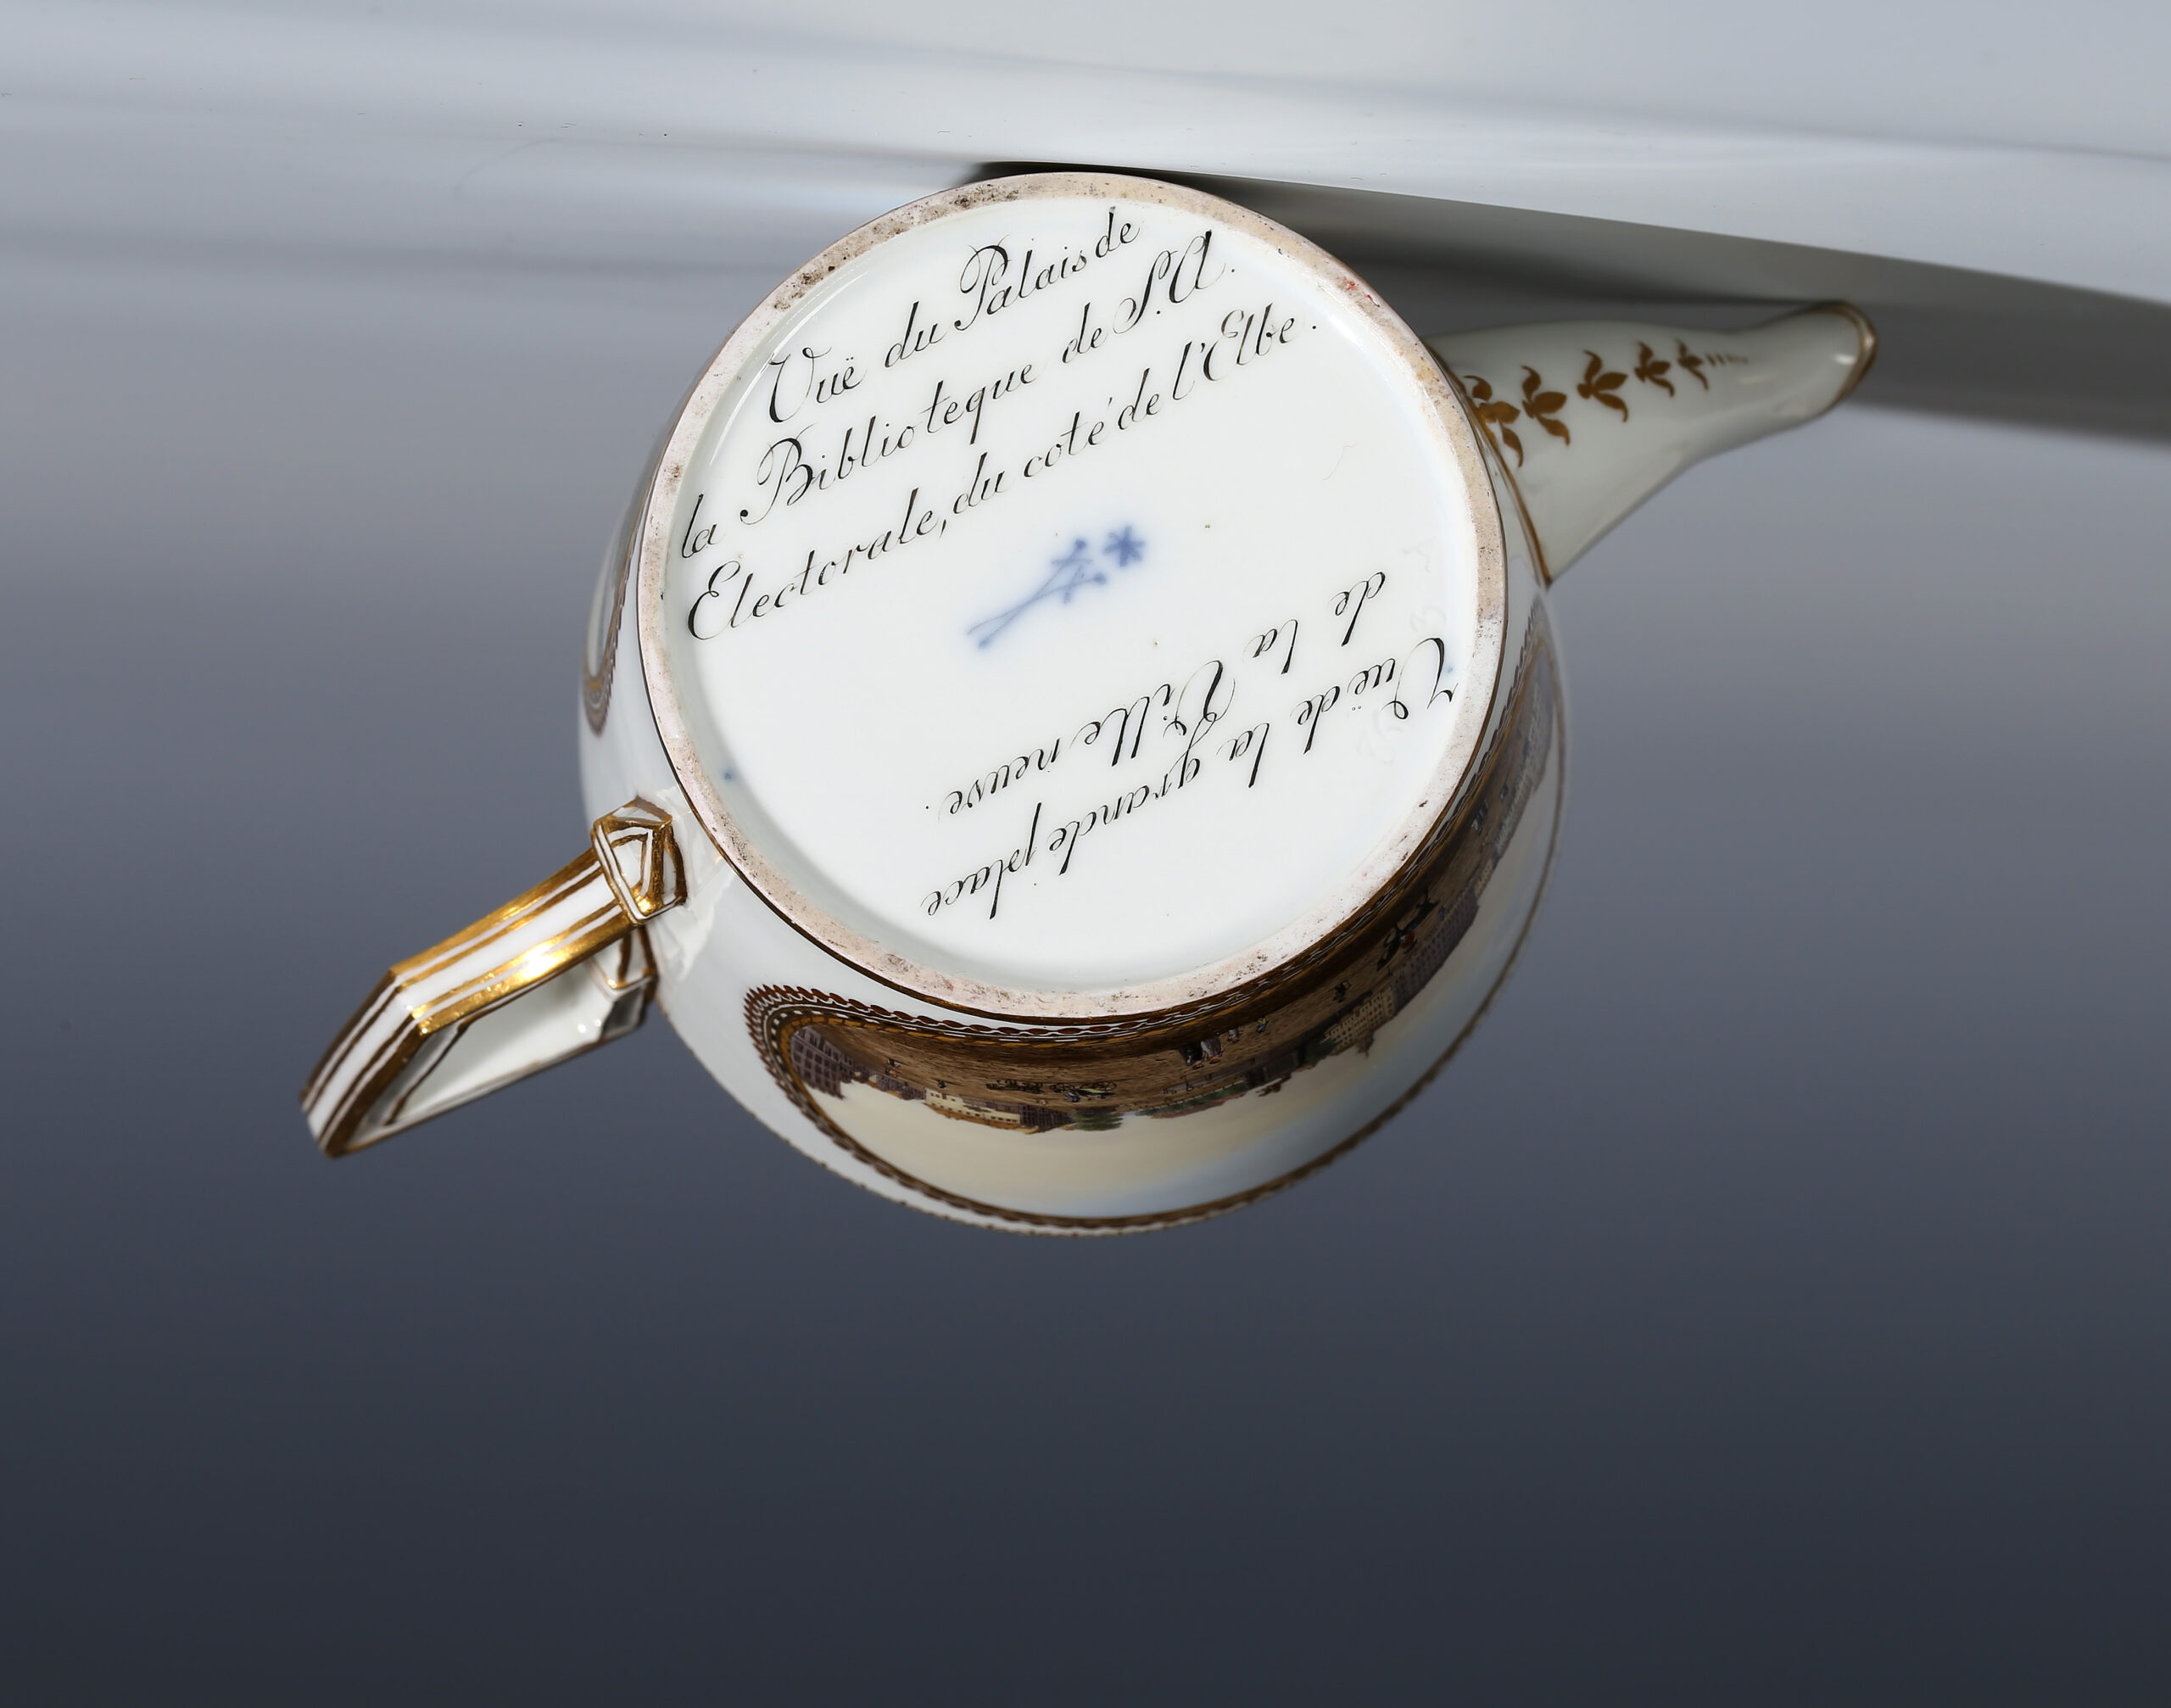 Vuë du Palais de
la Biblioteque de S.A.
Electorale, du coté de l'Elbe.
Vuë de la grande place
de la Ville neuve.